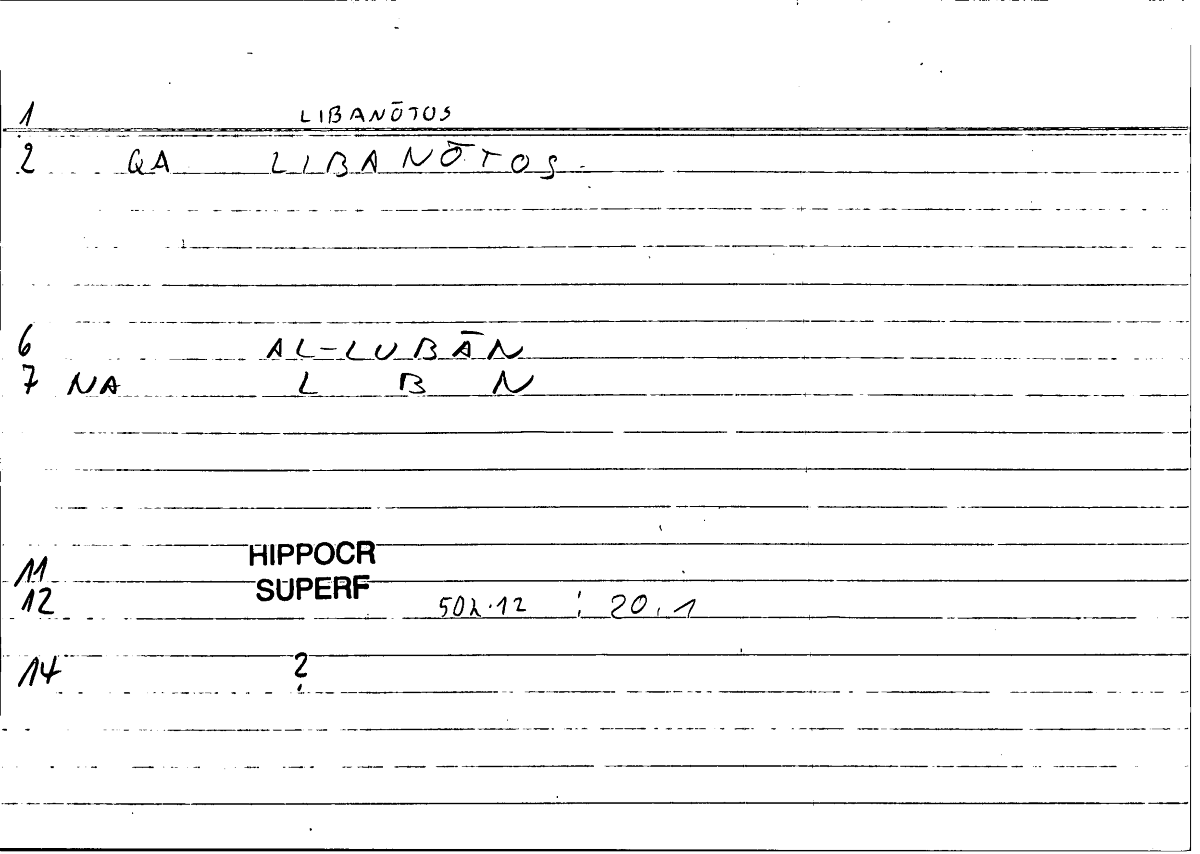 1 LIBANŌTOS
2 QA LIBANŌTOS
6 AL-LUBĀN
7 NA L B N
11 HIPPOCR
12 SUPERF 502.12 : 20.1
14 ?